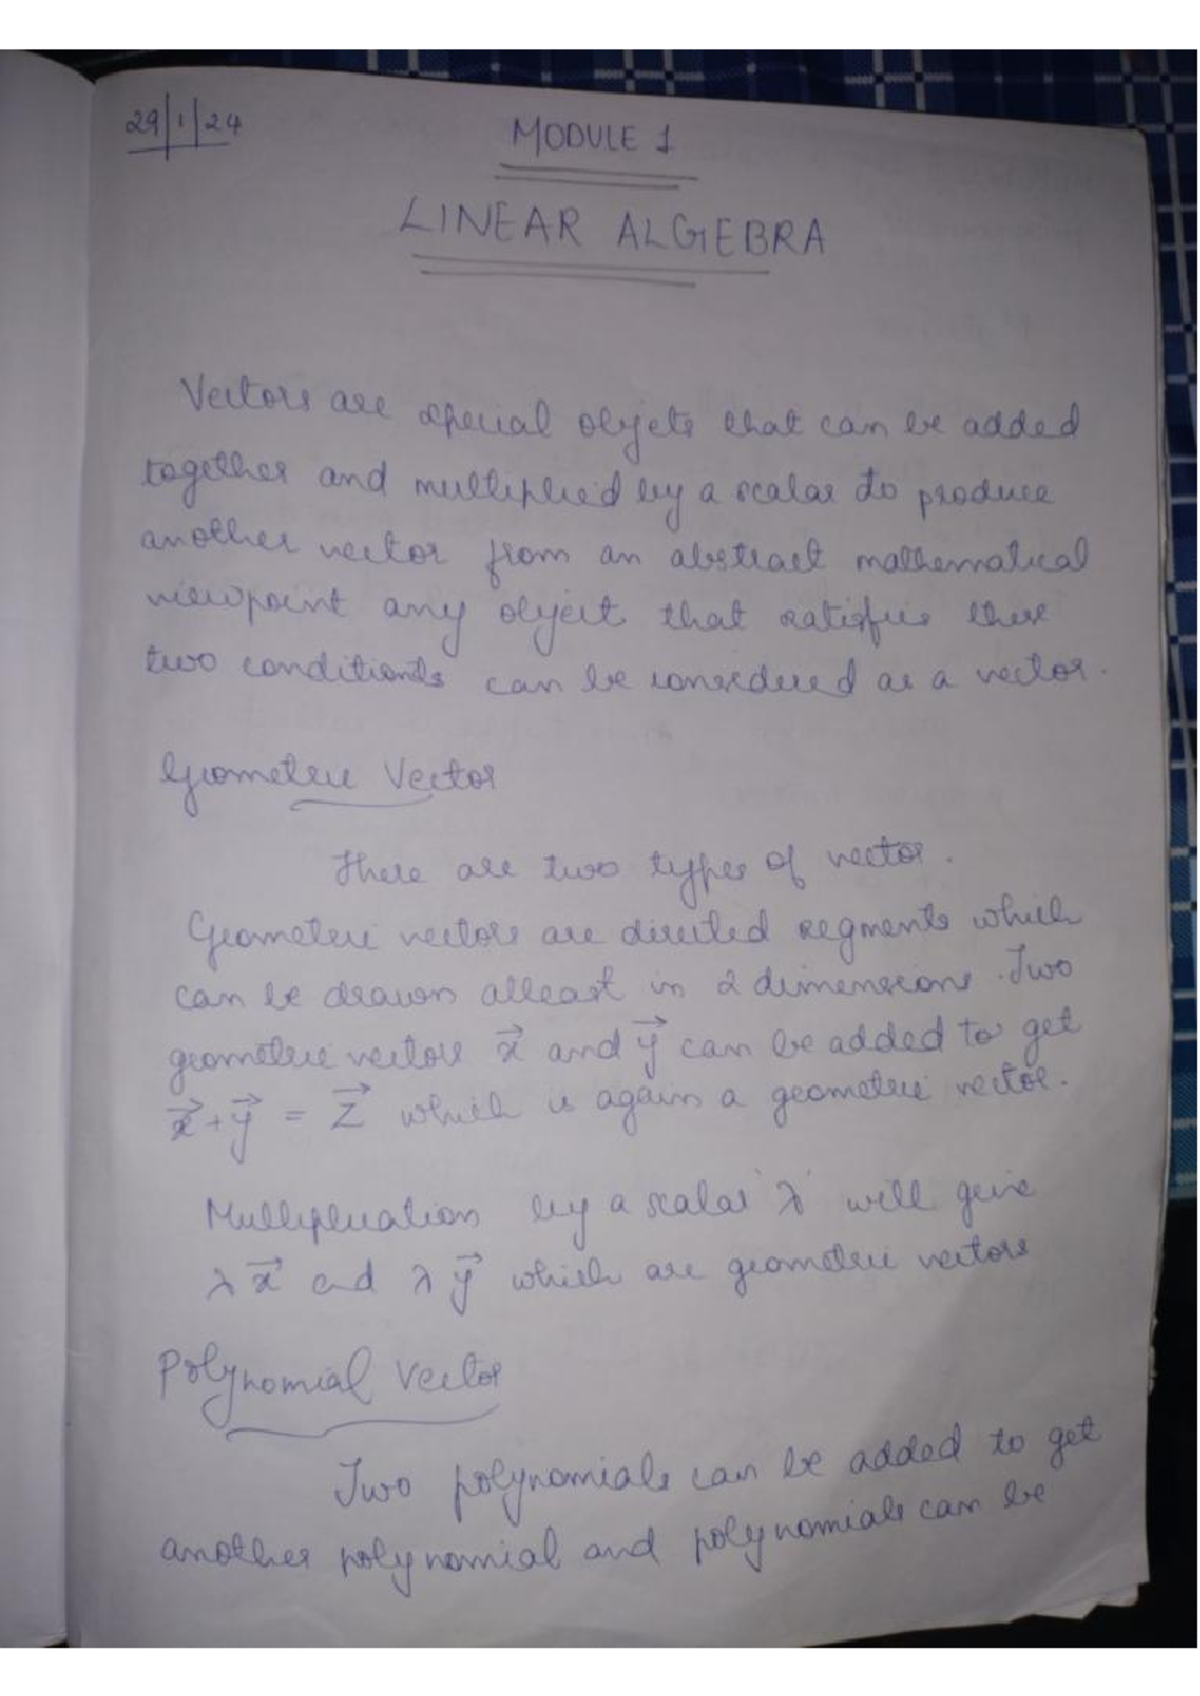 29/1/24
MODULE 1
LINEAR ALGEBRA
Vectors are special objets that can be added
together and multiplied by a scalar to produce
another vector from an abstract mathematical
viewpoint any object that satisfies these
two conditions can be considered as a vector.
Geometric Vector
There are two types of vector.
Geometric vectors are directed segments which
can be drawn atleast in 2 dimensions. Two
geometric vectors x⃗ and y⃗ can be added to get
x⃗ + y⃗ = z⃗ which is again a geometric vector.
Multiplication by a scalar 'λ' will give
λ x⃗ and λ y⃗ which are geometric vectors
Polynomial Vector
Two polynomials can be added to get
another polynomial and polynomials can be